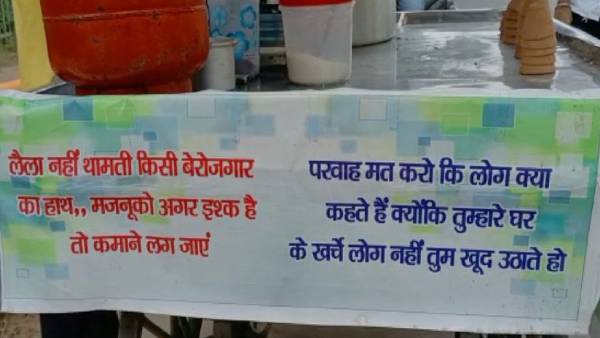 लैला नहीं थामती किसी बेरोजगार
का हाथ,, मजनूको अगर इश्क है
तो कमाने लग जाएं
परवाह मत करो कि लोग क्या
कहते हैं क्योंकि तुम्हारे घर
के खर्चे लोग नहीं तुम खूद उठाते हो